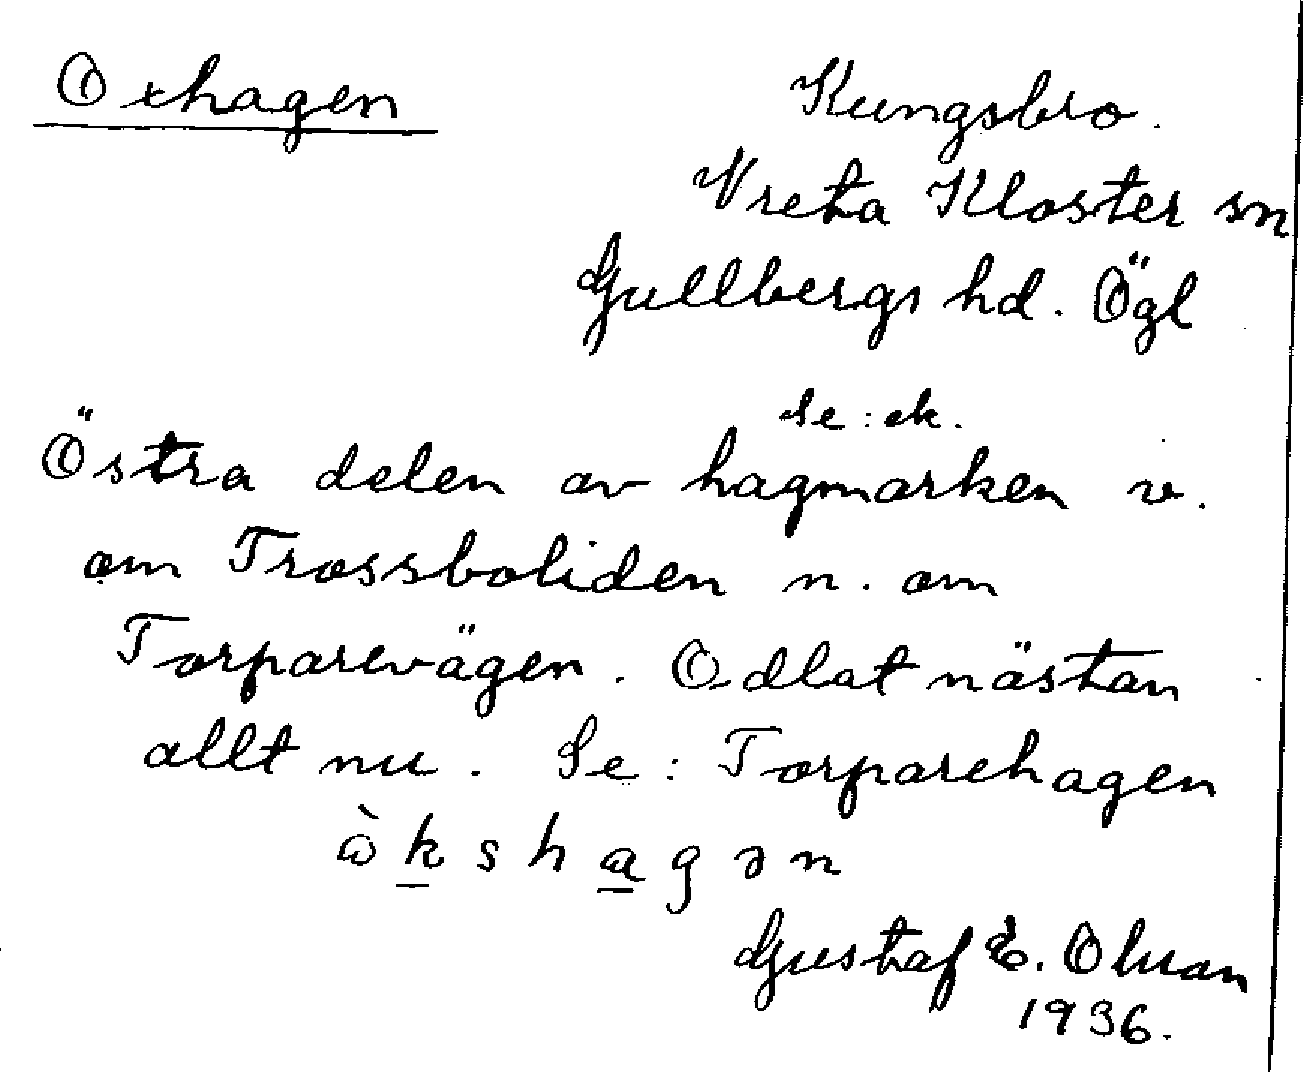 Oxhagen
Kungsbro.
Vreta Kloster sn
Gullbergs hd. Ögl
Se: ek.
Östra delen av hagmarken v.
om Trossboliden n. om
Torparevägen. Odlat nästan
allt nu. Se: Torparehagen
ὼkshagən
Gustaf E. Olsson
1936.